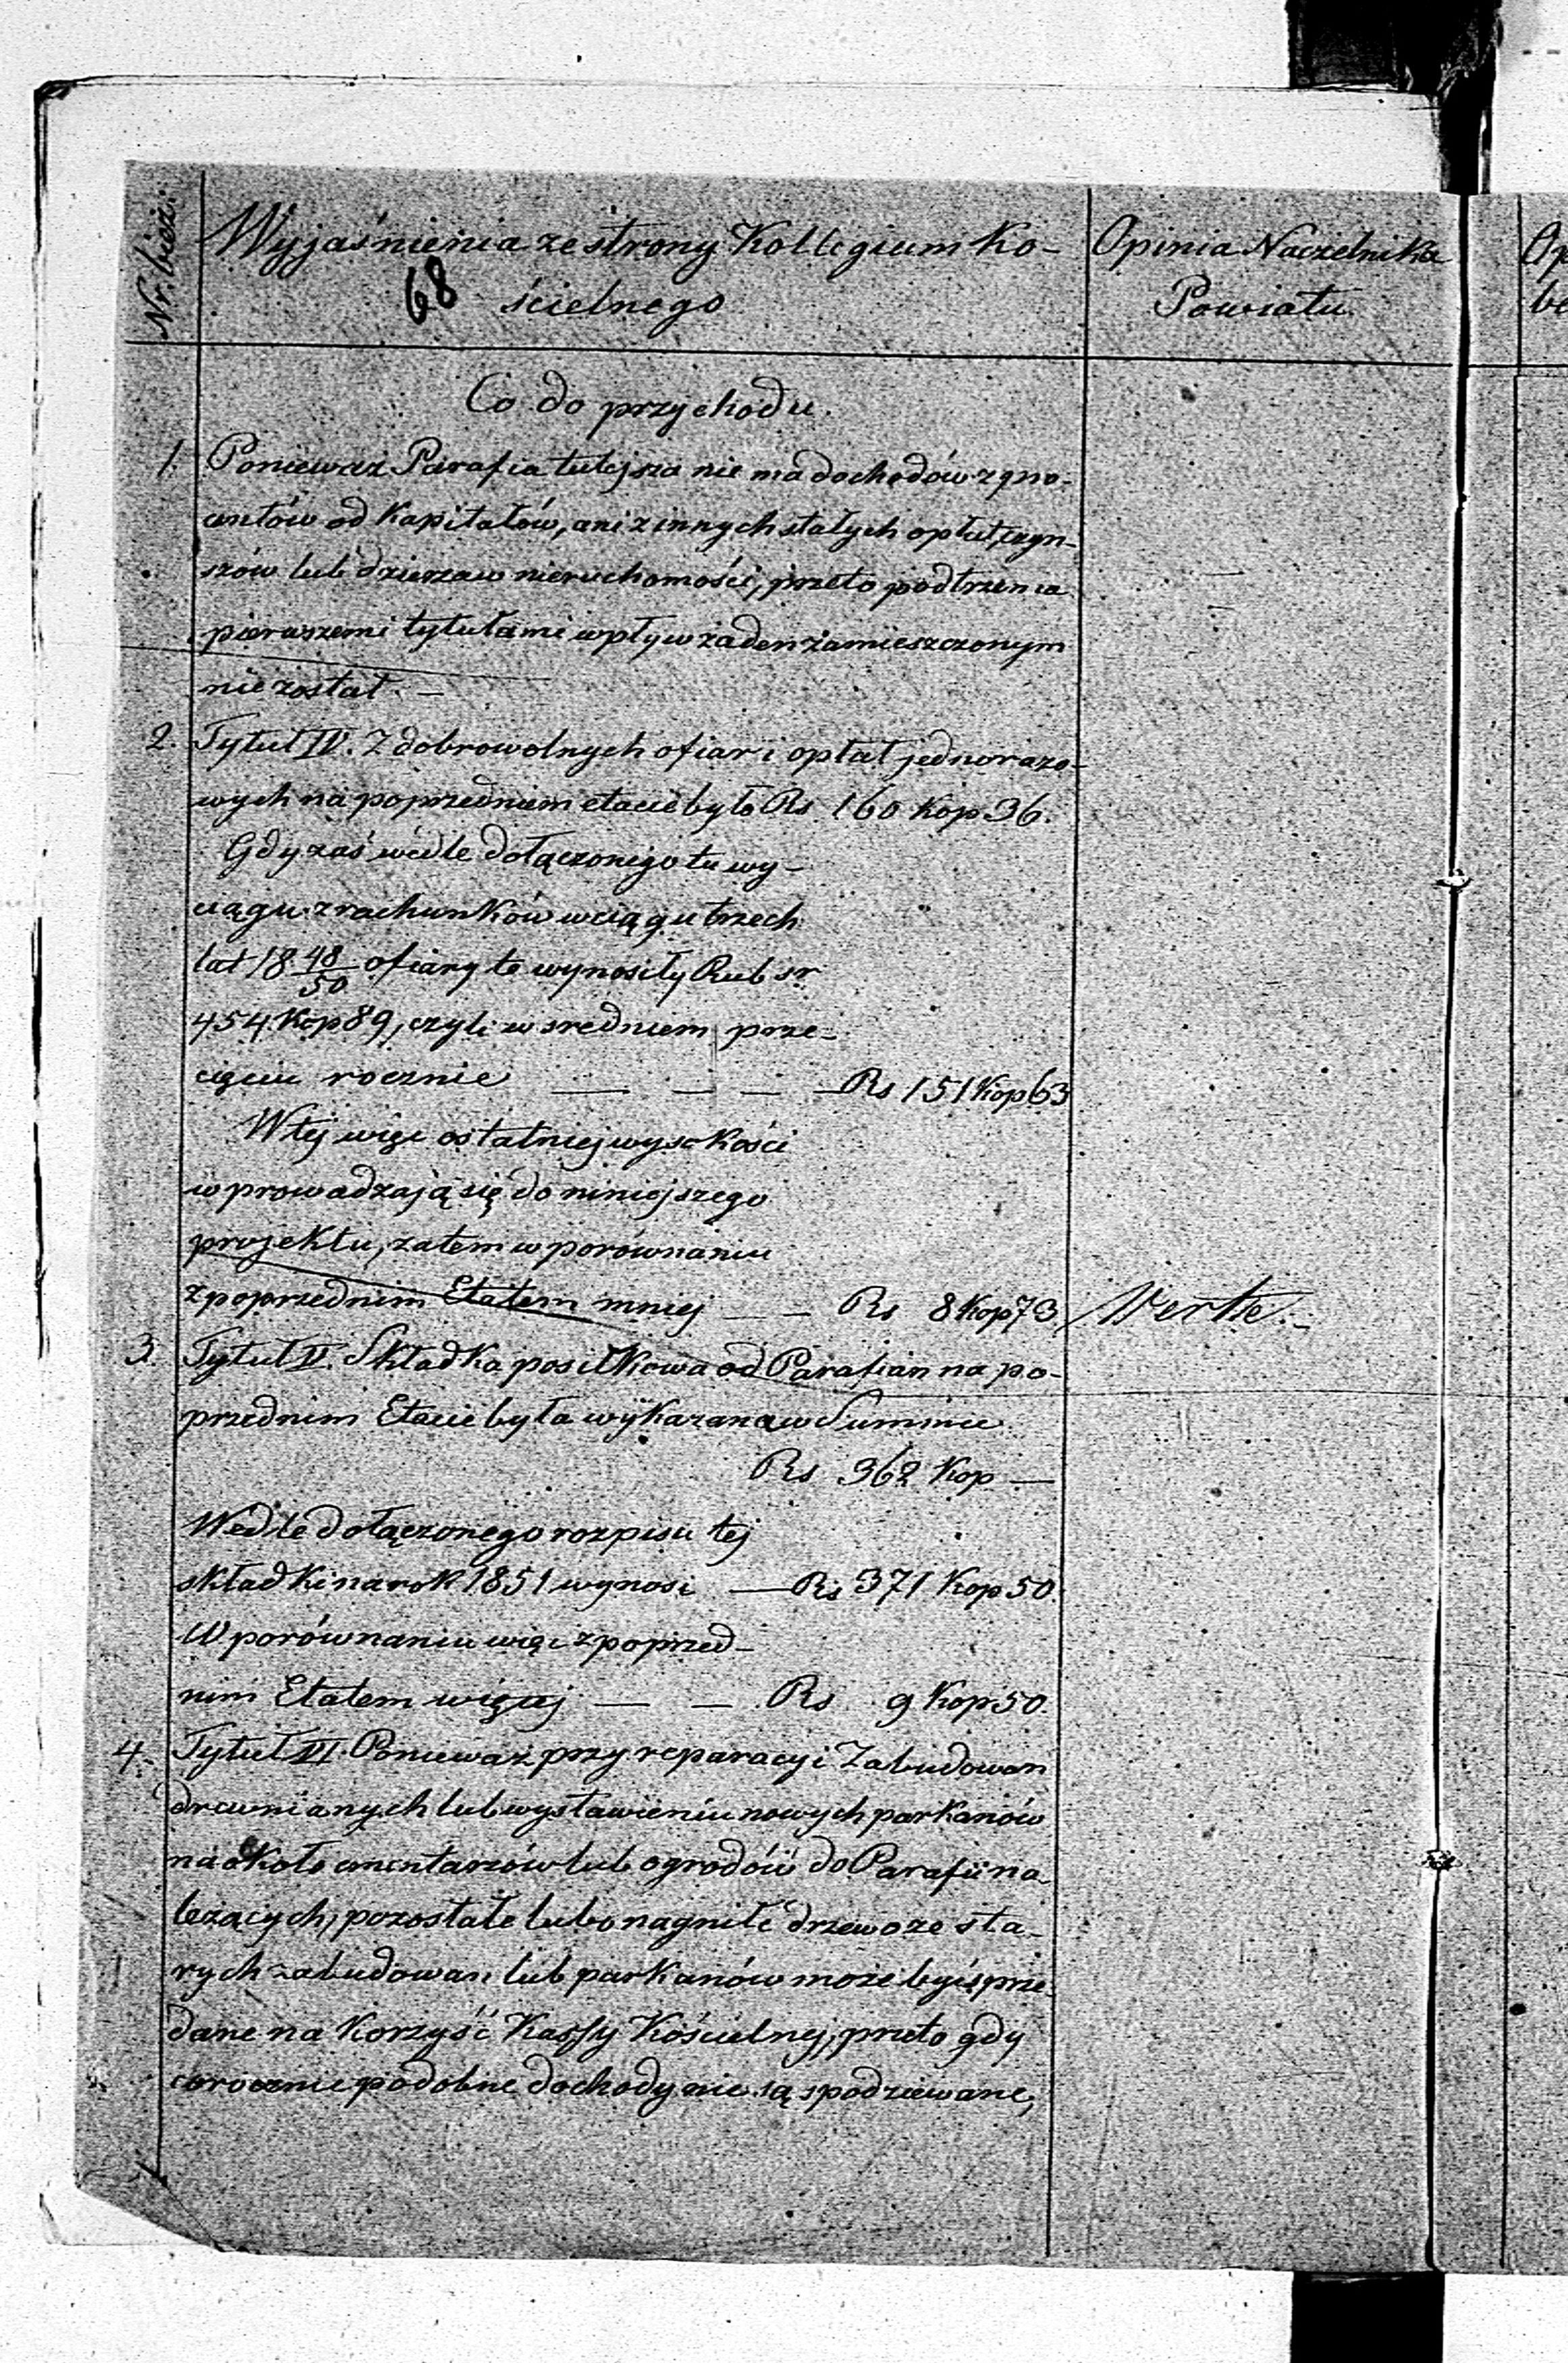 Nr. bież.
Wyjaśnienia ze strony Kollegium Ko-
ścielnego
68
Opinia Naczelnika
Powiatu.
Op
be
Co do przychodu.
1. Ponieważ Parafia tutejsza nie ma dochodów z gro-
untów od Kapitałów, ani z innych stałych opłat, czyn-
szów lub dzierzaw nieruchomości, przeto pod trzema
pierwszemi tytułami wpływ żaden zamieszczonym
nie został. —
2. Tytuł IV. Z dobrowolnych ofiar i opłat jednorazo-
wych na poprzedniem etacie było Rs. 160 Kop 36.
Gdy zaś wedle dołączonego tu wy-
ciągu z rachunków w ciągu trzech
lat 18 48/50 ofiary te wynosiły Rub sr
454 Kop 89, czyli w sredniem prze-
cięciu rocznie — — — Rs 151 Kop 63
W tej więc ostatniej wysokości
wprowadzają się do niniejszego
projektu, zatem w porównaniu
z poprzednim Etatem mniej — — Rs 8 Kop 73
Verte. —
3. Tytuł V. Składka posiłkowa od Parafian na po-
przednim Etacie była wykazana w Summie
Rs 362 Kop —
Wedle dołączonego rozpisu tej
składki na rok 1851 wynosi — Rs 371 Kop 50.
W porównaniu więc z poprzed-
nim Etatem więcej — — Rs 9 Kop 50.
4. Tytuł VI. Ponieważ przy reparacyi Zabudowan
drewnianych lub wystawieniu nowych parkanów
na około cmentarzów lub ogrodów do Parafii na-
leżących, pozostałe lub nagniłe drzewo ze sta-
rych zabudowan lub parkanów może być sprze-
dane na Korzyść Kassy Kościelnej, przeto gdy
corocznie podobne dochody nie są spodziewane,